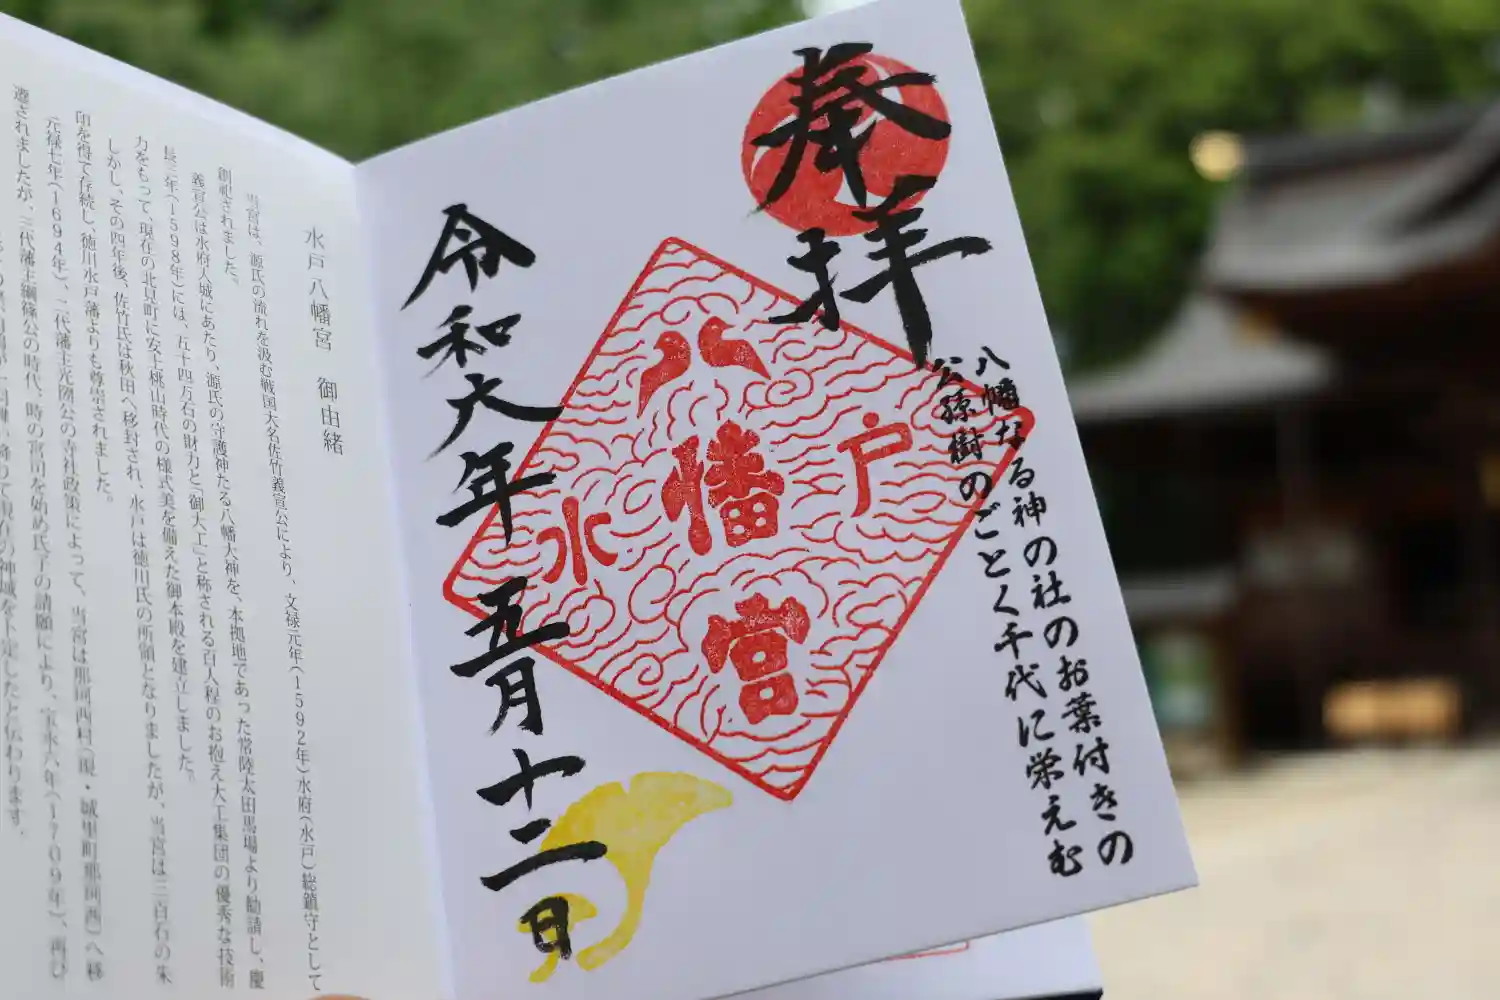 奉拝
八幡なる神の社のお葉付きの
公孫樹のごとく千代に栄えむ
水戸
八幡宮
令和六年五月十二日
水戸八幡宮 御由緒
当宮は、源氏の流れを汲む戦国大名佐竹義宣公により、文禄元年(1592年)水府(水戸)総鎮守として
創祀されました。
義宣公は水府入城にあたり、源氏の守護神たる八幡大神を、本拠地であった常陸太田馬場より勧請し、慶
長三年(1598年)には、五十四万石の財力と「御大工」と称される百人程のお抱え大工集団の優秀な技術
力をもって、現在の北見町に安土桃山時代の様式美を備えた御本殿を建立しました。
しかし、その四年後、佐竹氏は秋田へ移封され、水戸は徳川氏の所領となりましたが、当宮は三百石の朱
印を得て存続し、徳川水戸藩よりも尊崇されました。
元禄七年(1694年)、二代藩主光圀公の寺社政策によって、当宮は那珂西村(現・城里町那珂西)へ移
遷されましたが、三代藩主綱條公の時代、時の宮司を始め氏子の請願により、宝永六年(1709年)、再び